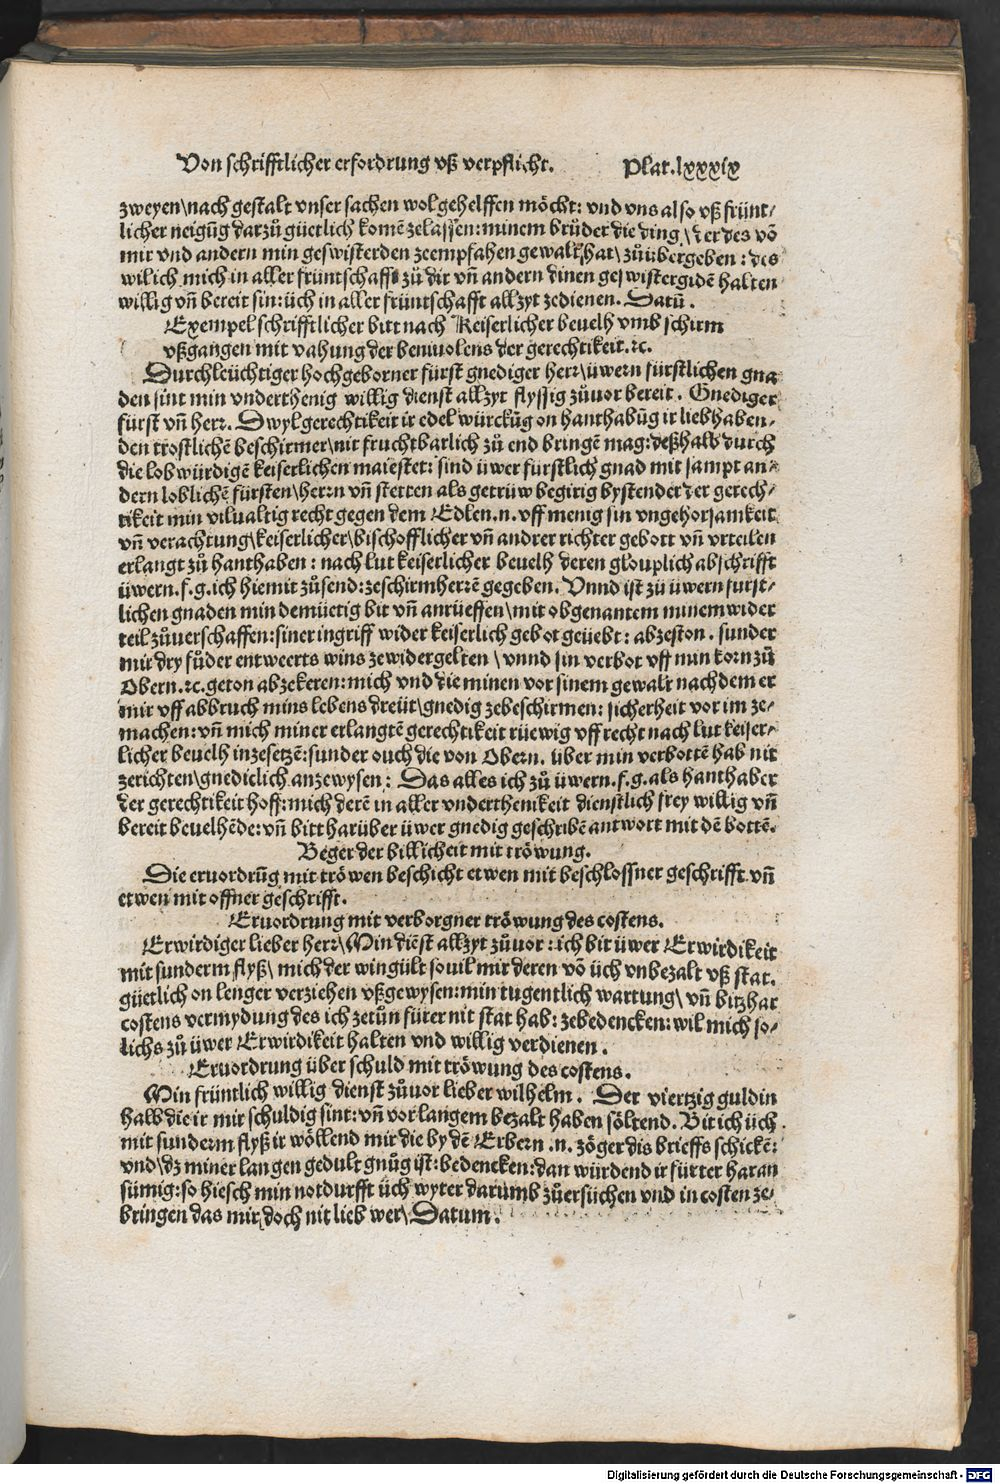 Von schrifftlicher erfordrung vß verpflicht. Plat.lxxxix
zweyen\nach gestalt vnser sachen wol gehelffen möcht: vnd vns also vß frünt⸗
licher neigūg darzů güetlich komē zelassen:minem brůder die ding\der des vō
mir vnd andern min geswisterden zeempfahen gewalt hat\zůübergeben: des
wil ich mich in aller früntschafft zů dir vn̄ andern dinen geswistergidē halten
willig vn̄ bereit sin:üch in aller früntschafft allzyt zedienen. Datū.
Exempel schrifftlicher bitt nach Keiserlicher beuelh vmb schirm
vßgangen mit vahung der beniuolens der gerechtikeit.ꝛc.
Durchleüchtiger hochgeborner fürst gnediger herr\üwern fürstlichen gna
den sint min vnderthenig willig dienst allzyt flyssig zůuor bereit. Gnediger
fürst vn̄ herr. Dwyl gerechtikeit ir edel würckūg on hanthabūg ir liebhaben⸗
den trostlichē beschirmer\nit fruchtbarlich zů end bringē mag:deßhalb durch
die lobwürdigē keiserlichen maiestet: sind üwer fürstlich gnad mit sampt an⸗
dern loblichē fürsten\herrn vn̄ stetten als getrüw begirig bystender der gerech⸗
tikeit min vilualtig recht gegen dem Edlen.n. vff menig sin vngehorsamkeit
vn̄ verachtung\keiserlicher\bischofflicher vn̄ andrer richter gebott vn̄ vrteilen
erlangt zů hanthaben: nach lut keiserlicher beuelh deren glouplich abschrifft
üwern.f.g.ich hiemit zůsend:zeschirmherrē gegeben. Vnnd ist zů üwern fürst⸗
lichen gnaden min demüetig bit vn̄ anrüeffen\mit obgenantem minem wider
teil zůuerschaffen:siner ingriff wider keiserlich gebot geüebt: abzeston. sunder
mir dry fůder entweerts wins zewidergelten\vnnd sin verbot vff min korn zů
Obern.ꝛc.geton abzekeren:mich vnd die minen vor sinem gewalt nach dem er
mir vff abbruch mins lebens dreüt\gnedig zebeschirmen: sicherheit vor im ze⸗
machen:vn̄ mich miner erlangtē gerechtikeit rüewig vff recht nach lut keiser⸗
licher beuelh inzesetzē:sunder ouch die von Obern. über min verbottē hab nit
zerichten\gnediclich anzewysen: Das alles ich zů üwern.f.g.als hanthaber
der gerechtikeit hoff:mich derē in aller vnderthenikeit dienstlich frey willig vn̄
bereit beuelhēde:vn̄ bitt harüber üwer gnedig geschribē antwort mit dē botē.
Beger der billicheit mit tröwung.
Die eruordrūg mit tröwen beschicht etwen mit beschlossner geschrifft vn̄
etwen mit offner geschrifft.
Eruordrung mit verborgner tröwung des costens.
Erwirdiger lieber herr\Min diēst allzyt zůuor:ich bit üwer Erwirdikeit
mit sunderm flyß\mich der wingült souil mir deren vō üch vnbezalt vß stat.
güetlich on lenger verziehen vßgewysen:min tugentlich wartung\vn̄ bitzhar
costens vermydung des ich zetůn fürer nit stat hab: zebedencken:wil mich so⸗
lichs zů üwer Erwirdikeit halten vnd willig verdienen.
Eruordrung über schuld mit tröwung des costens.
Min früntlich willig dienst zůuor lieber wilhelm. Der viertzig guldin
halb die ir mir schuldig sint:vn̄ vor langem bezalt haben söltend. Bit ich üch
mit sunderm flyß ir wöllend mir die by dē Erbern.n. zöger dis brieffs schickē:
vnd\dz miner langen gedult gnůg ist:bedencken:dan würdend ir fürter haran
sümig:so hiesch min notdurfft üch wyter darumb zůersüchen vnd in costen ze⸗
bringen das mir doch nit lieb wer\Datum.
Digitalisierung gefördert durch die Deutsche Forschungsgemeinschaft - DFG